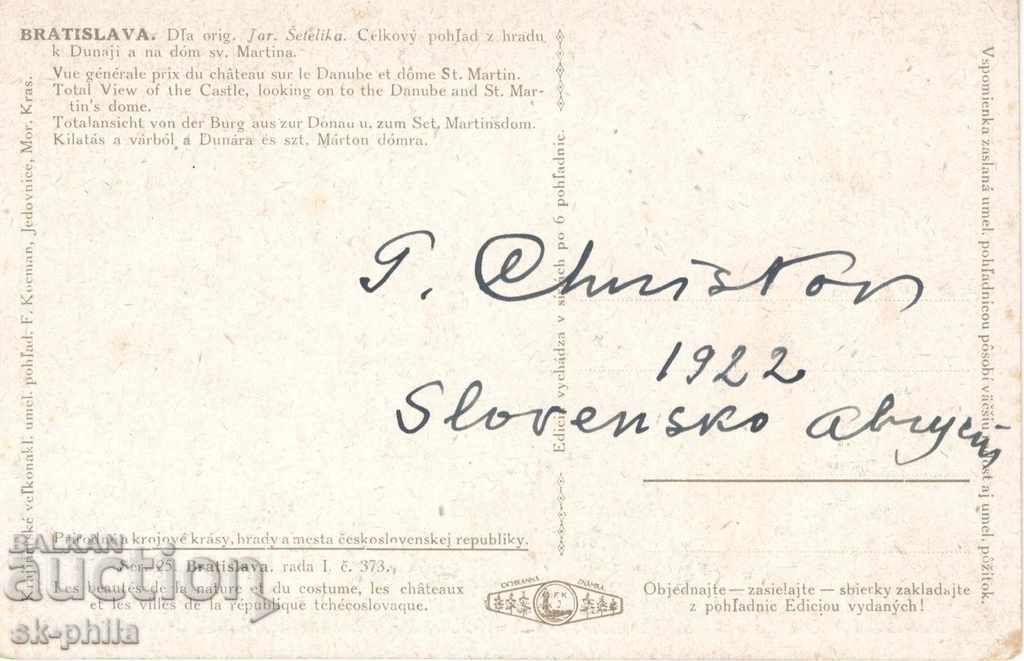 BRATISLAVA. Dľa orig. Jar. Šetelíka. Celkový pohľad z hradu
k Dunaji a na dóm sv. Martina.
Vue générale prix du château sur le Danube et dôme St. Martin.
Total View of the Castle, looking on to the Danube and St. Mar-
tin's dome.
Totalansicht von der Burg aus zur Donau u. zum Sct. Martinsdom.
Kilatás a várból a Dunára és szt. Márton dómra.
umel. pohľad. F. Kocman, Jedovnice, Mor. Kras.
Edícia vychádza v sériach po 6 pohľadnic.
Vspomienka zaslaná umel. pohľadnicou pôsobí väčšiu aj umel. pôžitok.
P. Christov
1922
Slovensko
Prírodné a krojové krásy, hrady a mesta československej republiky.
Ser. 25. Bratislava. rada I. č. 373.
Les beautés de la nature et du costume, les châteaux
et les villes de la république tchécoslovaque.
OCHRANNÁ ZNÁMKA
F K
J
Objednajte — zasielajte — sbierky zakladajte
z pohľadnic Ediciou vydaných!
BALKAN
auction
sk-phila